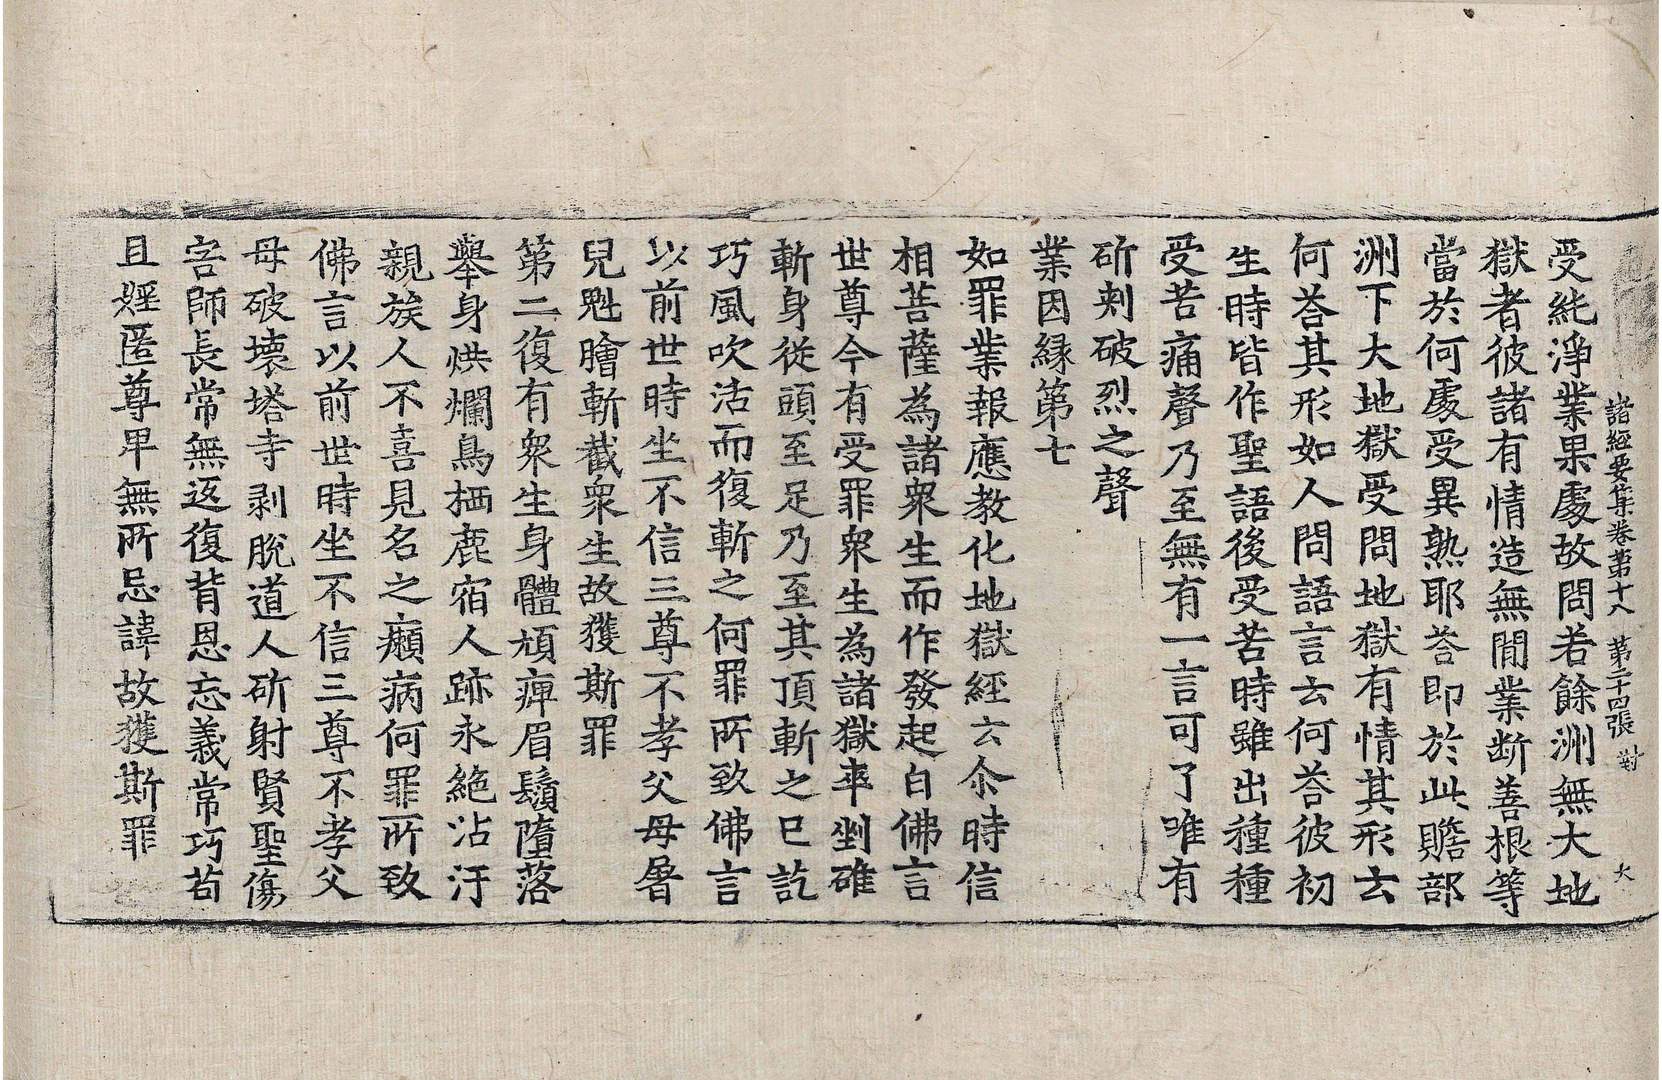 諸經要集卷第十八 第二十四張 對 大
受純淨業果處故問若餘洲無大地
獄者彼諸有情造無間業斷善根等
當於何處受異熟耶荅即於此贍部
洲下大地獄受問地獄有情其形云
何荅其形如人問語言云何荅彼初
生時皆作聖語後受苦時雖出種種
受苦痛聲乃至無有一言可了唯有
斫刾破烈之聲
業因緣第七
如罪業報應教化地獄經云尒時信
相菩薩為諸衆生而作發起白佛言
世尊今有受罪衆生為諸獄率剉碓
斬身從頭至足乃至其頂斬之已訖
巧風吹活而復斬之何罪所致佛言
以前世時坐不信三尊不孝父母屠
兒魁膾斬截衆生故獲斯罪
第二復有衆生身體頑痺眉鬚墮落
舉身烘爛鳥栖鹿宿人跡永絶沾汙
親族人不喜見名之癩病何罪所致
佛言以前世時坐不信三尊不孝父
母破壞塔寺剥脫道人斫射賢聖傷
害師長常無返復背恩忘義常巧苟
且婬匿尊卑無所忌諱故獲斯罪